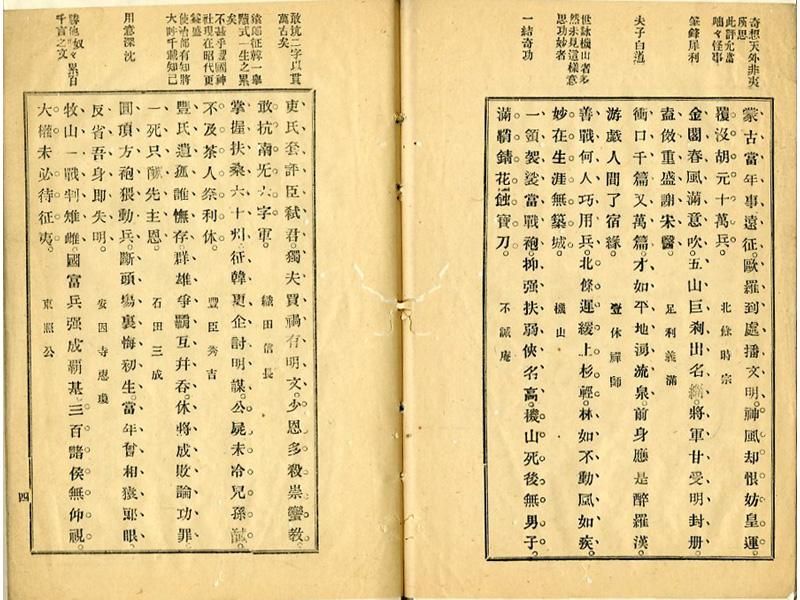 奇想天外非夷
所思
此評尤當
咄々怪事
筆鋒犀利
夫子自道
世詠機山者多
然未見這樣意
思功妙者
一結奇功
蒙古當年事遠征。歐羅到處播文明。神風却恨妨皇運。
覆沒胡元十萬兵。 北條時宗
金閣春風滿意吹。五山巨刹出名緇。將軍甘受明封册。
盍倣重盛謝宋醫。 足利義滿
衝口千篇又萬篇。才如平地湧流泉。前身應是醉羅漢。
游戲人間了宿緣。 壹休禪師
善戰何人巧用兵。北條遲緩上杉輕。林如不動風如疾。
妙在生涯無築城。 機山
一領袈裟當戰袍。抑强扶弱俠名高。機山死後無男子。
滿鞘錆花蝕寶刀。 不識庵
敢抗二字以貫
萬古矣
猿郎征韓一舉
隨式一生之累
矣
不甚乎豐國神
社現在昭代更
益盛
使治部有知將
大呼千載知己
用意深沈
勝他奴々累百
千言之文
吏氏套評臣弑君。獨夫買禍有明文。少恩多殺崇蠻教。
敢抗南无六字軍。 織田信長
掌握扶桑六十州。征韓更企討明謀。公屍未冷兒孫馘。
不及茶人祭利休。 豐臣秀吉
豐氏遺孤誰憮存。群雄爭霸互幷吞。休將成敗論功罪。
一死只酬先主恩。 石田三成
圓頂方袍猥動兵。斷頭場裏悔初生。當年奮相猿郎眼。
反省吾身即失明。 安國寺惠瓊
牧山一戰判雉雌。國富兵强成覇基。三百諸侯無仰視。
大權未必待征夷。 東照公
四